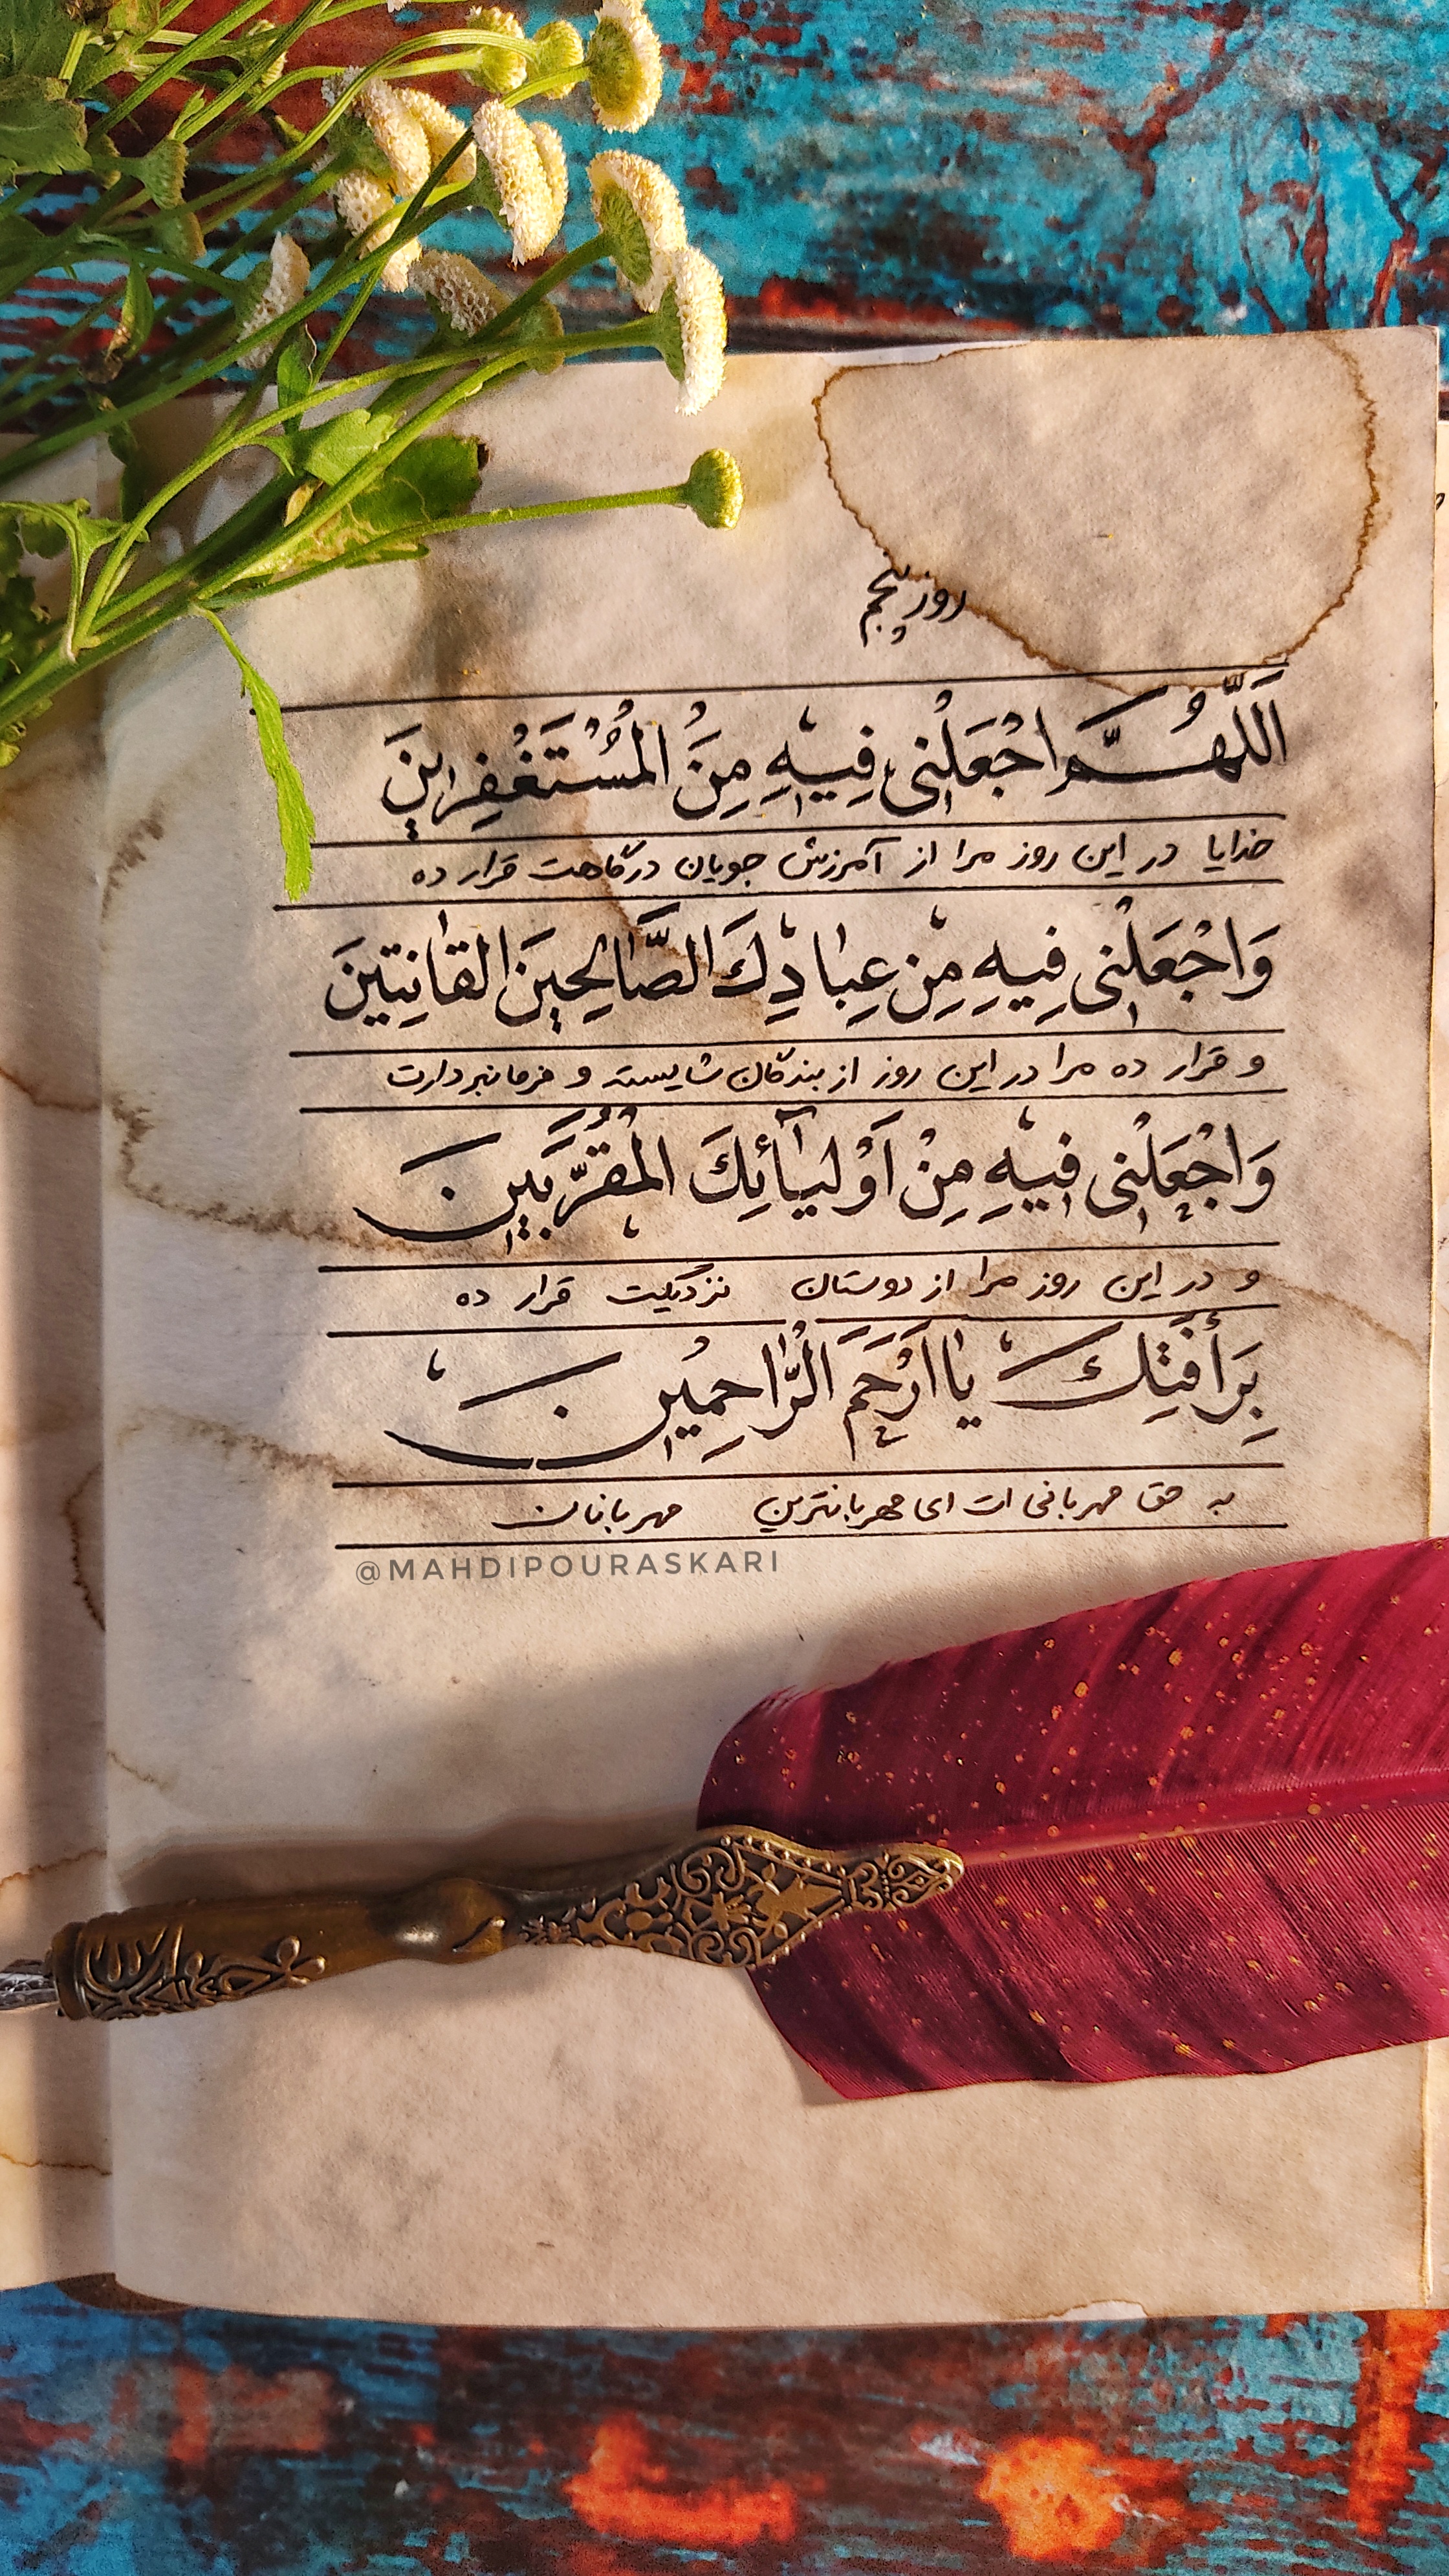 روز پنجم
اَللّٰهُمَّ اجْعَلْنی فِیهِ مِنَ الْمُسْتَغْفِرینَ
خدایا در این روز مرا از آمرزش جویان درگاهت قرار ده
وَاجْعَلْنی فِیهِ مِنْ عِبٰادِكَ الصّٰالِحینَ القٰانِتینَ
و قرار ده مرا در این روز از بندگان شایسته و فرمانبردارت
وَاجْعَلْنی فیهِ مِنْ اَوْلیٰآئِكَ الْمُقَرَّبینَ
و در این روز مرا از دوستان نزدیکت قرار ده
بِرَأفَتِكَ یٰا اَرْحَمَ الْرّٰاحِمینَ
به حق مهربانی ات ای مهربانترین مهربانان
@MAHDIPOURASKARI